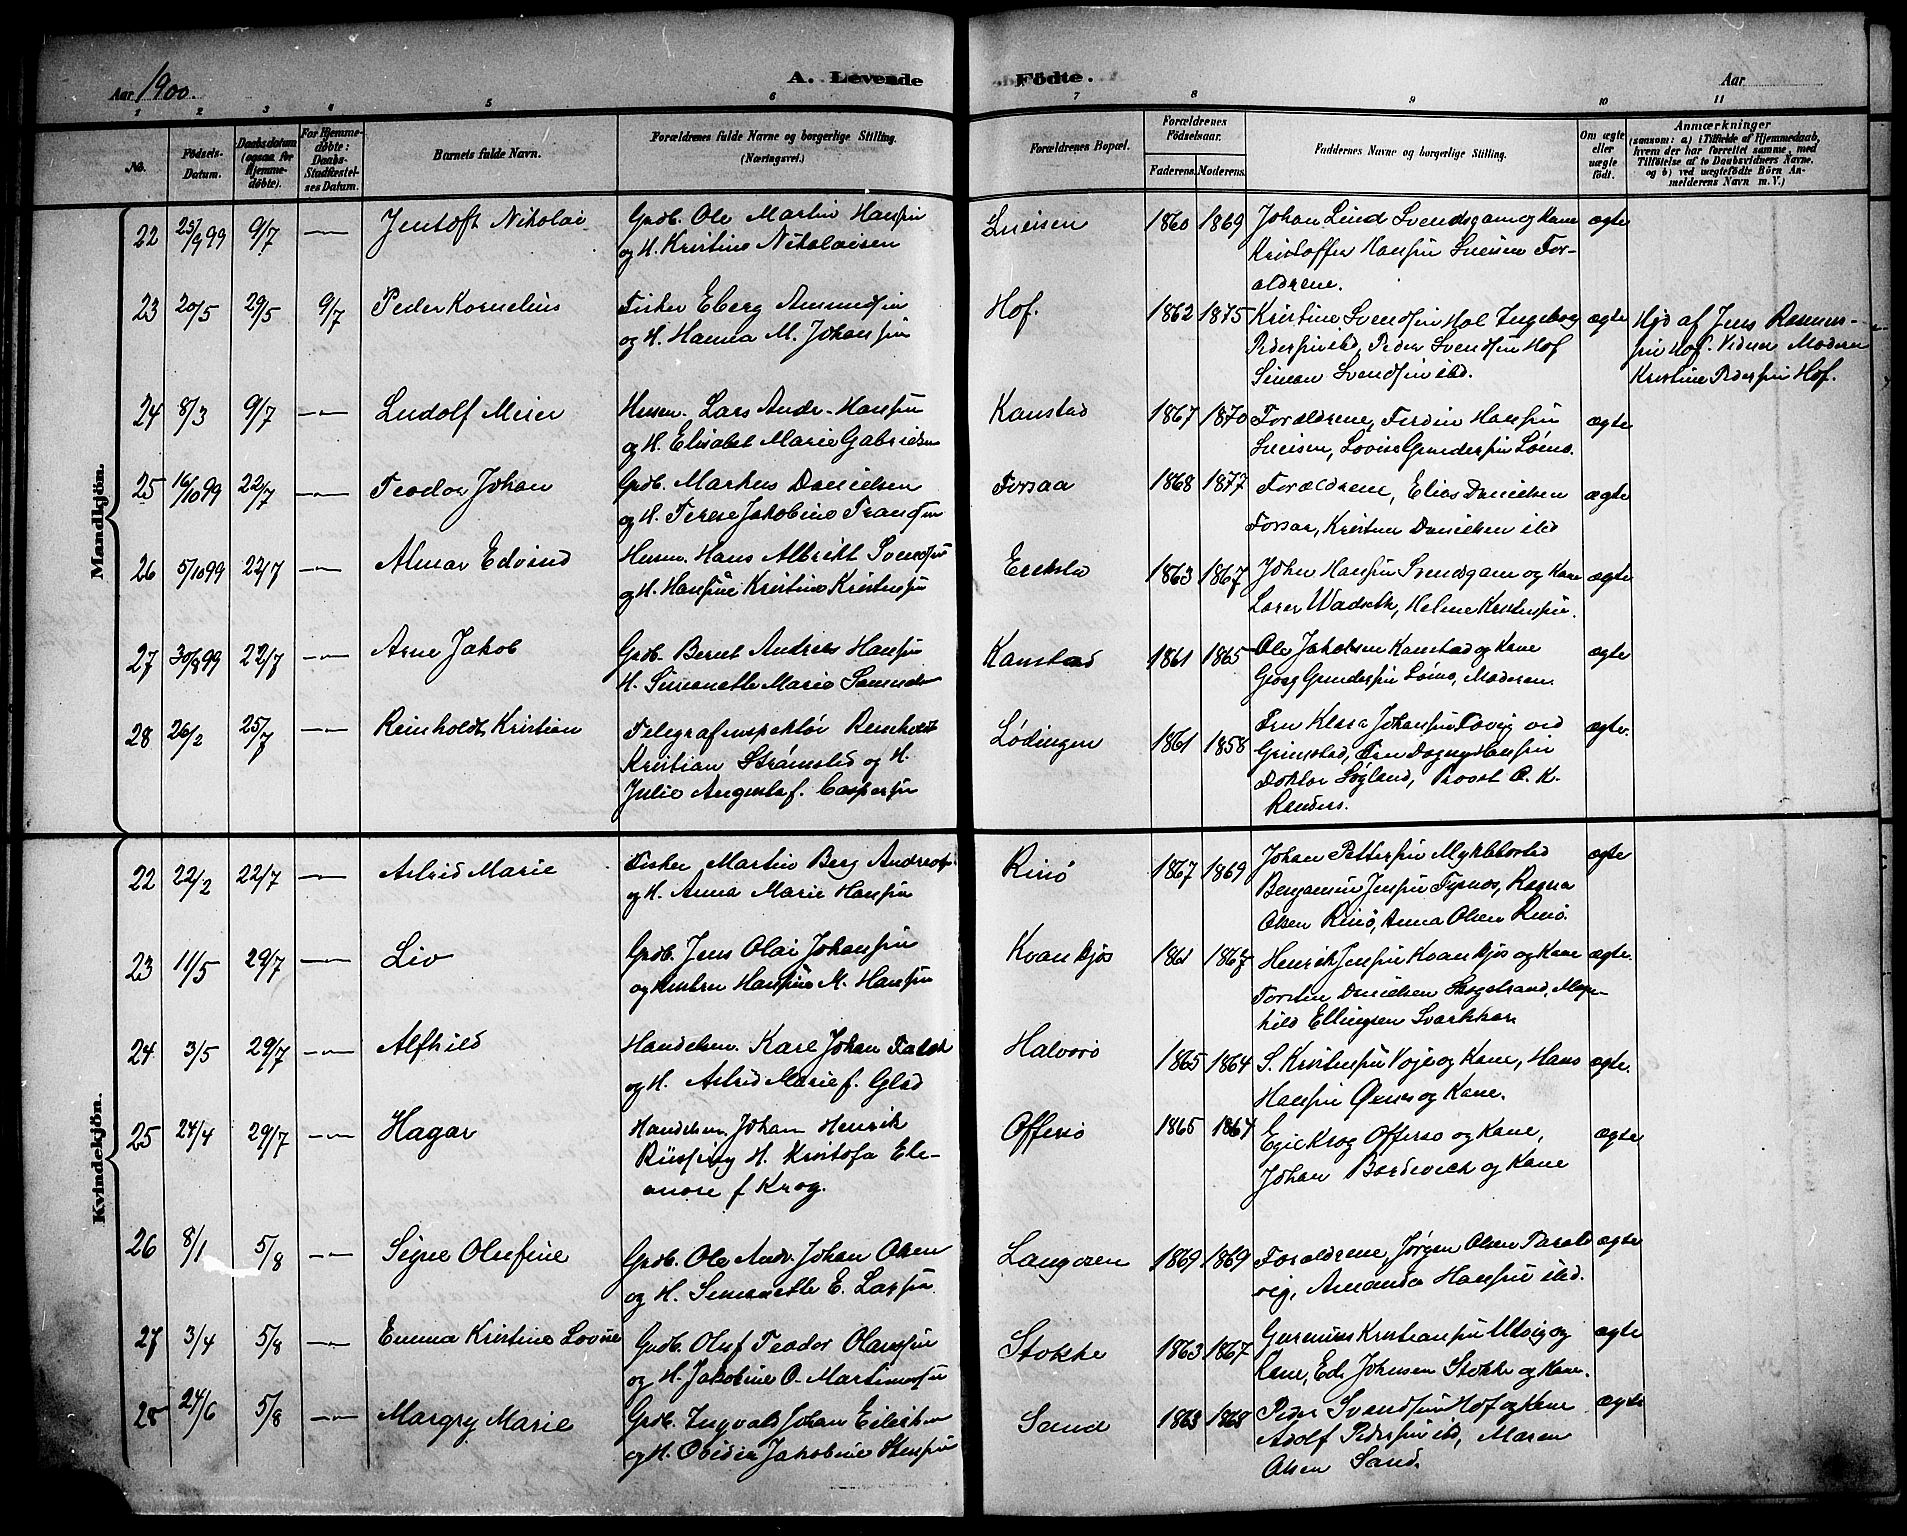 Aar 1900.
A. Levende Fødte.
Aar
1 2 3 4 5 6 7 8 9 10 11
No.
Fødsels-Datum.
Daabsdatum (ogsaa for Hjemmedøbte).
For Hjemmedøbte: Daabs-Stadfæstelses Datum.
Barnets fulde Navn.
Forældrenes fulde Navne og borgerlige Stilling. (Næringsvei.)
Forældrenes Bopæl.
Forældrenes Fødselsaar.
Faderens. Moderens.
Faddernes Navne og borgerlige Stilling.
Om ægte eller uægte født.
Anmærkninger
(saasom: a) i Tilfælde af Hjemmedaab, hvem der har forrettet samme, med Tilføielse af to Daabsvidners Navne. og b) ved uægtefødte Børn Anmelderens Navn m. V.)
Mandkjön.
22 25/9 99 9/7 Jentoft Nikolai
Grdb. Ole Martin Hansen
og H. Kristine Nikolaisen
1860 1869
Johan Lind Svendsgam og Kone
Kristoffer Hansen
Forældrene.
ægte
23 20/5 29/5 9/7 Peder Kornelius
Fisker Eberg Amundsen
og H. Hanna M. Johansen
Hof.
1862 1875
Kristine Svendsen Hol Ingeborg
Pedersen ibd, Peder Svendsen Hof
Simon Svendsen ibd.
ægte
Hjd af Jens Rasmussen Hof. Vidner Moderen
Kristine Pedersen Hof.
24 8/3 9/7 Ludolf Meier
Husm. Lars Andr. Hansen
og H. Elisabet Marie Gabrielsen
Kanstad
1867 1870
Forældrene, Ferdin Hansen
Lovise Gundersen
ægte
25 16/10 99 22/7 Teodor Johan
Grdb. Markus Danielsen
og H. Terese Jakobine
Forsaa
1868 1877
Forældrene, Elias Danielsen
Forsaa, Kristine Danielsen ibd
ægte
26 5/10 99 22/7 Almar Edvind
Husm. Hans Albrikt Svendsen
og H. Hansine Kristine Kristensen
Erikstad
1863 1867
Johan Hansen Svendsgam og Kone
Wadseth, Helene Kristensen.
ægte
27 30/8 99 22/7 Arne Jakob
Grdb. Bernt Andreas Hansen
H. Simonette Marie
Kanstad
1861 1865
Ole Jakobsen Kanstad og Kone
Georg Gundersen, Moderen.
ægte
28 26/2 25/7 Reinholdt Kristian
Telegrafinspektør Reinholdt
Kristian Strømsted og H.
Julie Augusta f. Caspersen
Lødingen
1861 1858
Fru Klara Johansen ved
Grimstad, Fru Dagny Hansen
Doktor Søgland, Provst O. K.
Randers.
ægte.
Kvindekjön.
22 22/2 22/7 Astrid Marie
Fisker Martin Berg Andreas
og H. Anna Marie Hansen
Rinø
1867 1869
Johan Pettersen Myklebostad
Benjamin Jensen, Ragna
Olsen Rinø, Anna Olsen Rinø.
ægte
23 11/5 29/7 Liv
Grdb. Jens Olai Johansen
og Hustru Hansine M. Hansen
Kvankjøs
1861 1867
Henrik Jensen Kvankjøs og Kone
Torsten Danielsen Skogstrand, Magnhild Ellingsen
ægte.
24 3/5 29/7 Alfhild
Handelsm. Karl Johan Falch
og H. Astrid Marie f. Glad
Halvorø
1865 1864
S. Kristensen Voje og Kone, Hans
Hansen og Kone.
ægte.
25 24/4 29/7 Hagar
Handelsm. Johan Henrik
H. Kristofa Eleanore f Krog.
Offersø
1865 1867
Krog Offersø og Kone,
Johan Bordevich og Kone
ægte
26 8/1 5/8 Signe Olufine
Grdb. Ole Andr. Johan Olsen
og H. Simonette E. Larsen
1869 1869
Forældrene, Jørgen Olsen
vig, Amanda Hansen ibd.
ægte
27 3/4 5/8 Emma Kristine Lovise
Grdb. Oluf Teodor Olaussen
og H. Jakobine O. Martinusen
Stokke
1863 1867
Kristiansen Utvig og
Kone, Ed. Johnsen Stokke og Kone.
ægte
28 24/6 5/8 Margry Marie
Grdb. Ingvald Johan Eilertsen
og H. Ovidia Jakobine
Sand
1863 1868
Peder Svendsen Hof og Kone
Adolf Pedersen ibd, Maren
Olsen Sand.
ægte